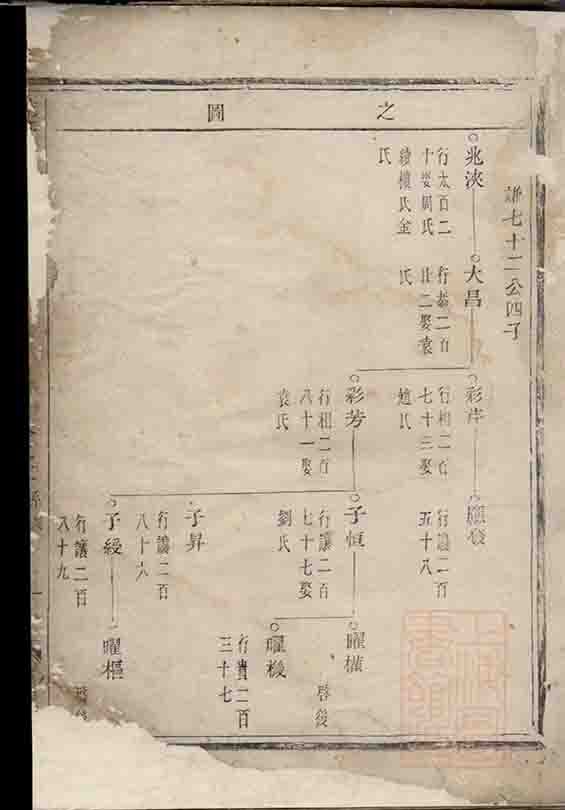 之圖
七十二公四子
兆浹
行太百二
十娶周氏
續橫氏金
氏
大昌
行恭二百
廿二娶袁
氏
彩芹
行相二百
七十三娶
趙氏
應發
行讓二百
五十八
彩芳
行相二百
八十一娶
袁氏
子恒
行讓二百
七十七娶
劉氏
曜權
啓後
曜機
行貴二百
三十七
子昇
行讓二百
八十六
子綬
行讓二百
八十九
曜樞